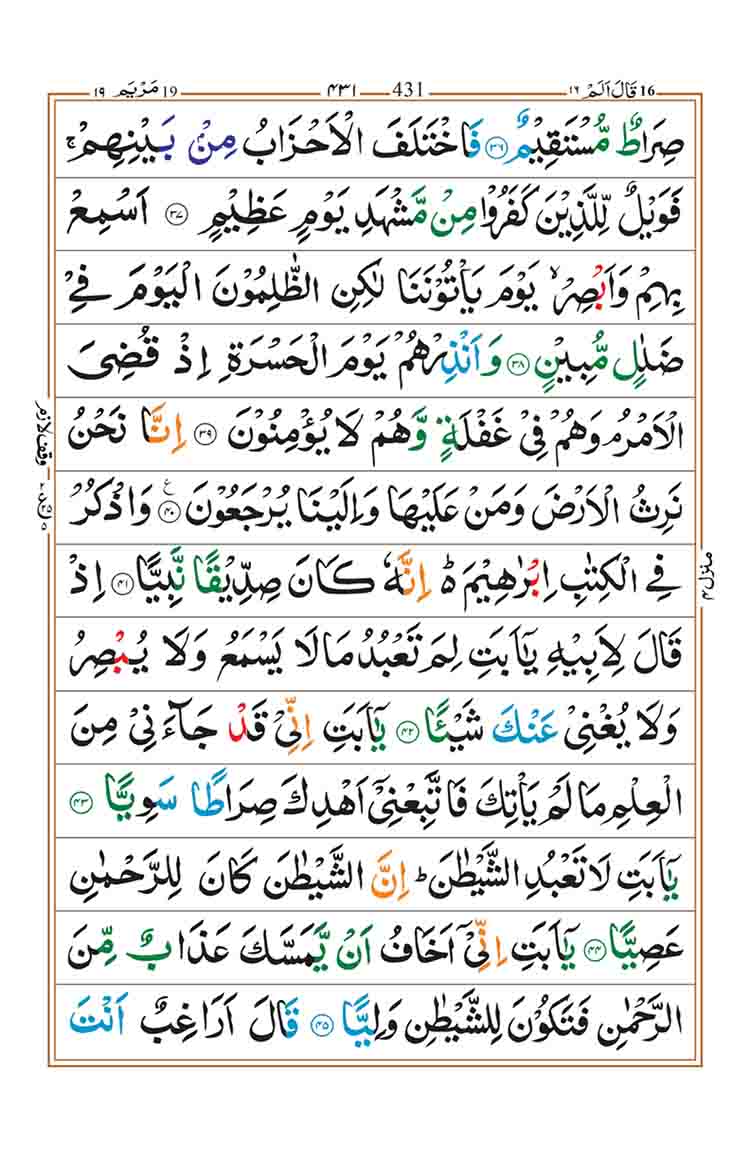 ١٩ مَرْيَم 19 ٤٣١ 431 ١٦ قَالَ اَلَمْ 16
صِرَاطٌ مُّسْتَقِيْمٌ ۝٣٦ فَاخْتَلَفَ الْاَحْزَابُ مِنْۢ بَيْنِهِمْ ۚ
فَوَيْلٌ لِّلَّذِيْنَ كَفَرُوْا مِنْ مَّشْهَدِ يَوْمٍ عَظِيْمٍ ۝٣٧ اَسْمِعْ
بِهِمْ وَاَبْصِرْ ۙ يَوْمَ يَاْتُوْنَنَا لٰكِنِ الظّٰلِمُوْنَ الْيَوْمَ فِيْ
ضَلٰلٍ مُّبِيْنٍ ۝٣٨ وَاَنْذِرْهُمْ يَوْمَ الْحَسْرَةِ اِذْ قُضِىَ
الْاَمْرُ ۘ وَهُمْ فِيْ غَفْلَةٍ وَّهُمْ لَا يُؤْمِنُوْنَ ۝٣٩ اِنَّا نَحْنُ
نَرِثُ الْاَرْضَ وَمَنْ عَلَيْهَا وَاِلَيْنَا يُرْجَعُوْنَ ۝٤٠ ع وَاذْكُرْ
فِي الْكِتٰبِ اِبْرٰهِيْمَ ۥ ط اِنَّهٗ كَانَ صِدِّيْقًا نَّبِيًّا ۝٤١ اِذْ
قَالَ لِاَبِيْهِ يٰۤاَبَتِ لِمَ تَعْبُدُ مَا لَا يَسْمَعُ وَلَا يُبْصِرُ
وَلَا يُغْنِيْ عَنْكَ شَيْـًٔا ۝٤٢ يٰۤاَبَتِ اِنِّيْ قَدْ جَآءَنِيْ مِنَ
الْعِلْمِ مَا لَمْ يَاْتِكَ فَاتَّبِعْنِيْۤ اَهْدِكَ صِرَاطًا سَوِيًّا ۝٤٣
يٰۤاَبَتِ لَا تَعْبُدِ الشَّيْطٰنَ ؕ اِنَّ الشَّيْطٰنَ كَانَ لِلرَّحْمٰنِ
عَصِيًّا ۝٤٤ يٰۤاَبَتِ اِنِّيْۤ اَخَافُ اَنْ يَّمَسَّكَ عَذَابٌ مِّنَ
الرَّحْمٰنِ فَتَكُوْنَ لِلشَّيْطٰنِ وَلِيًّا ۝٤٥ قَالَ اَرَاغِبٌ اَنْتَ
وقف لازم
منزل ٤